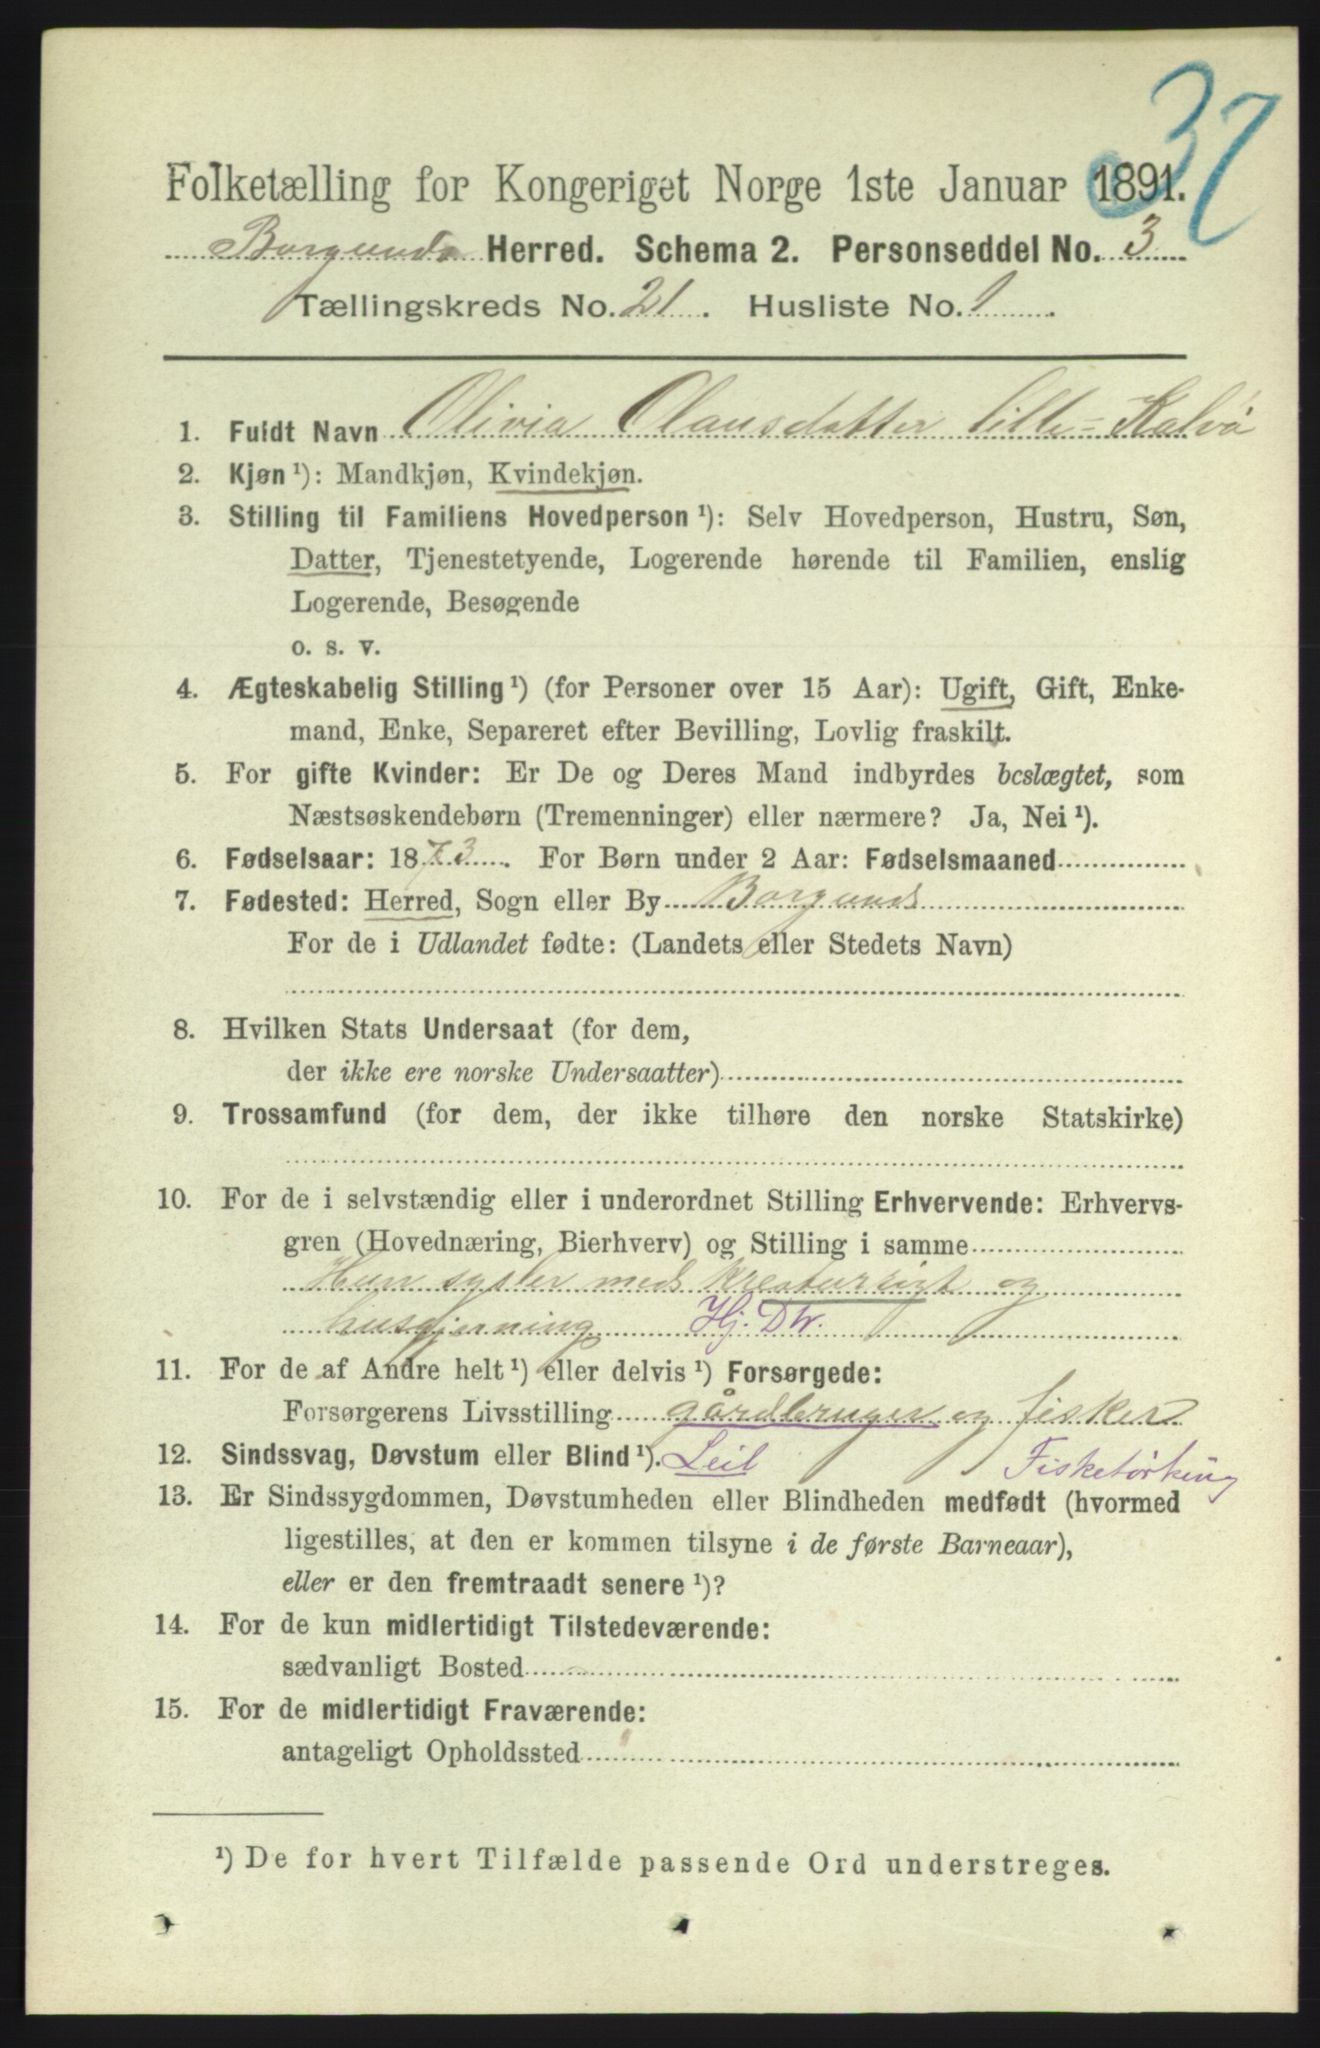 37
Folketælling for Kongeriget Norge 1ste Januar 1891.
Borgunds Herred. Schema 2. Personseddel No. 3
Tællingskreds No. 21. Husliste No. 1
1. Fuldt Navn Olivia Olausdatter lille-Kalvö
2. Kjøn ¹): Mandkjøn, Kvindekjøn.
3. Stilling til Familiens Hovedperson ¹): Selv Hovedperson, Hustru, Søn,
Datter, Tjenestetyende, Logerende hørende til Familien, enslig
Logerende, Besøgende
o. s. v.
4. Ægteskabelig Stilling ¹) (for Personer over 15 Aar): Ugift, Gift, Enke-
mand, Enke, Separeret efter Bevilling, Lovlig fraskilt.
5. For gifte Kvinder: Er De og Deres Mand indbyrdes beslægtet, som
Næstsøskendebørn (Tremenninger) eller nærmere? Ja, Nei ¹).
6. Fødselsaar: 1873. For Børn under 2 Aar: Fødselsmaaned
7. Fødested: Herred, Sogn eller By Borgund
For de i Udlandet fødte: (Landets eller Stedets Navn)
8. Hvilken Stats Undersaat (for dem,
der ikke ere norske Undersaatter)
9. Trossamfund (for dem, der ikke tilhøre den norske Statskirke)
10. For de i selvstændig eller i underordnet Stilling Erhvervende: Erhvervs-
gren (Hovednæring, Bierhverv) og Stilling i samme
Hun sysler med kreaturrögt og
husgjerning Hj. Dtr.
11. For de af Andre helt ¹) eller delvis ¹) Forsørgede:
Forsørgerens Livsstilling gårdbruger og fisker
12. Sindssvag, Døvstum eller Blind ¹). Leil Fisketörking
13. Er Sindssygdommen, Døvstumheden eller Blindheden medfødt (hvormed
ligestilles, at den er kommen tilsyne i de første Barneaar),
eller er den fremtraadt senere ¹)?
14. For de kun midlertidigt Tilstedeværende:
sædvanligt Bosted
15. For de midlertidigt Fraværende:
antageligt Opholdssted
¹) De for hvert Tilfælde passende Ord understreges.